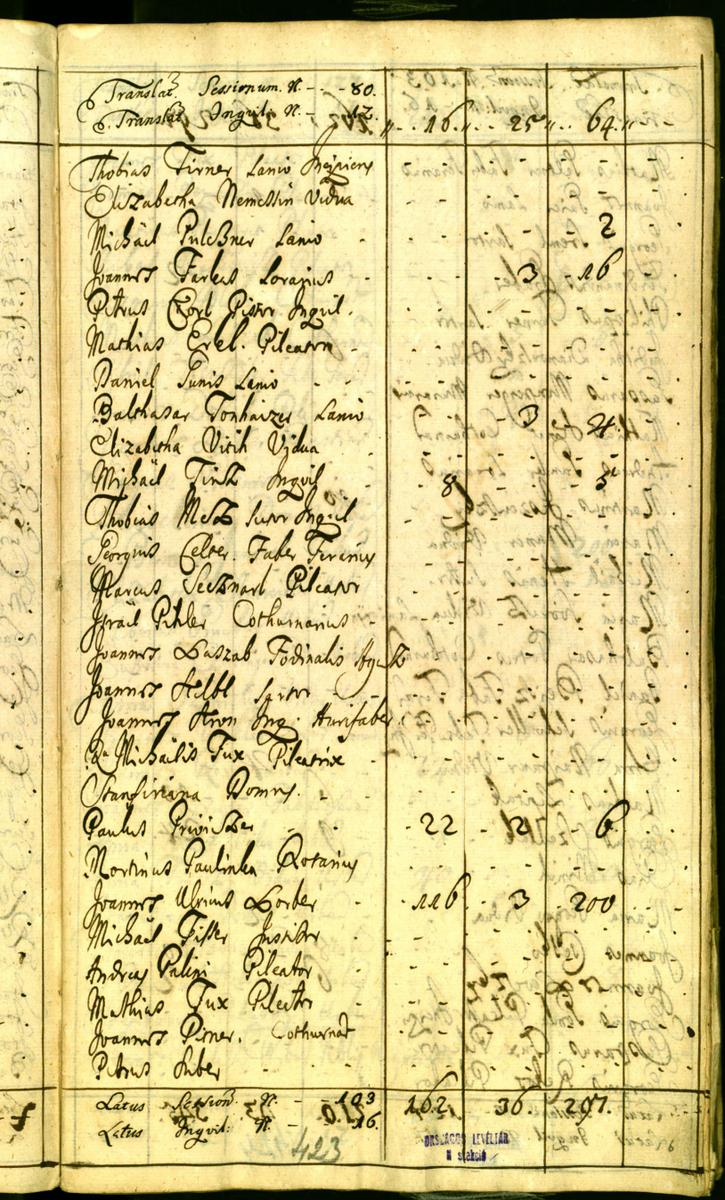 Translat. Sessionum. N. - - 80.
Translat. Inquil: N. - 12. " - - 16. " - - 25 " - - 64. "
Thobias Tirner Lanio Incipiens
Elizabetha Nemethin Vidua
Michäel Pulcßner Lanio 2
Joannes Farkas Lorarius 3 16
Petrus Ertl Pistor Inquil.
Mathias Erel. Pileator
Daniel Tunis Lanio
Balthasar Tonhaizer Lanio 3 4
Elizabetha Vitih Vidua
Michäel Tintz Inquil 8 5
Thobias Metz Sutor Inquil
Georgius Celter. Faber Ferarius
Marcus Seeznarl Pileator
Israël Pihler Cothurnarius
Joannes Laszab Fodinalis
Joannes Helbl Sartor
Joannes Kron Inq. Aurifaber
Ra Michäelis Fux Pileatrix
Domus.
Paulus Priviczer 22 12 6
Martinus Paulinka Rotarius
Joannes Ulricus Lorber 116 3 200
Michäel Fister Institor
Andreas Palini Pileator
Mathias Fux Pileator
Joannes Pirner. Cothurnar
Petrus Huber
Latus Session. N. - - 103 162. 36. 297.
Latus Inquil: N. - - 16.
423
ORSZÁGOS LEVÉLTÁR
N szekció